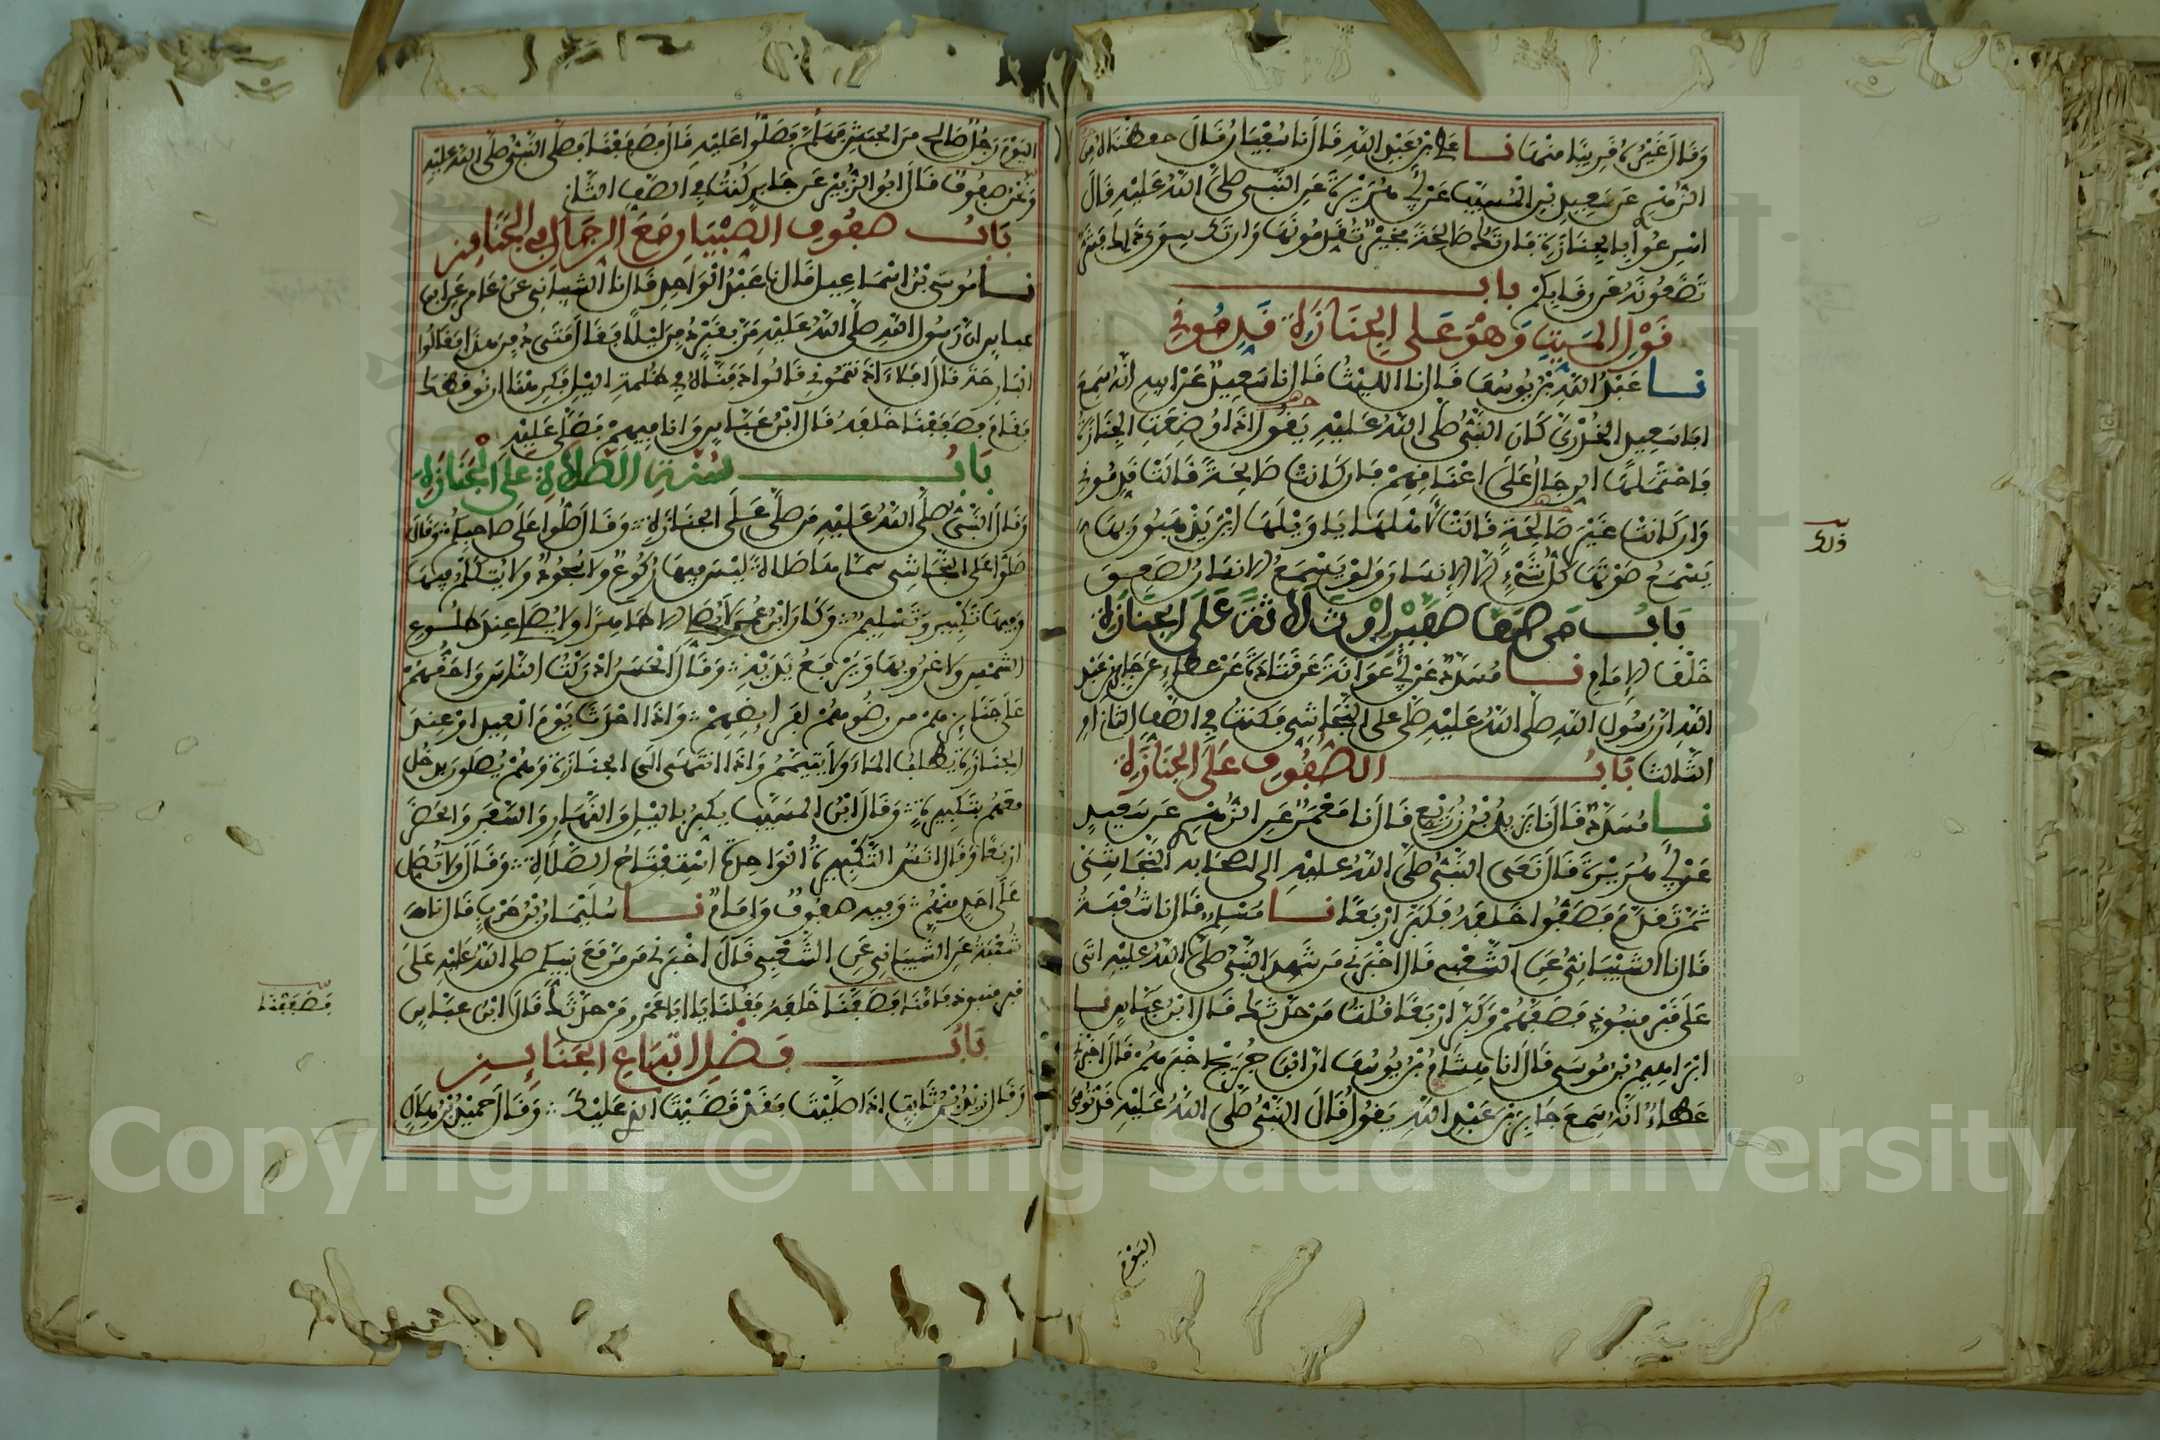 وقال غيره قريبا منها نا علي بن عبد الله قال نا سفيان قال حفظناه من
الزهري عن سعيد بن المسيب عن أبي هريرة عن النبي صلى الله عليه قال
اسرعوا بالجنازة فإن تك صالحة فخير تقدمونها وإن تك سوى ذلك فشر
تضعونه عن رقابكم باب
قول الميت وهو على الجنازة قدموني
نا عبد الله بن يوسف قال نا الليث قال نا سعيد عن أبيه أنه سمع
أبا سعيد الخدري كان النبي صلى الله عليه يقول إذا وضعت الجنازة
فاحتملها الرجال على أعناقهم فإن كانت صالحة قالت قدموني
وإن كانت غير صالحة قالت لأهلها يا ويلها أين يذهبون بها
يسمع صوتها كل شيء إلا الإنسان ولو يسمع الإنسان لصعق
باب من صف صفين أو ثلاثة على الجنازة
خلف الإمام نا مسدد عن أبي عوانة عن قتادة عن عطاء عن جابر بن عبد
الله أن رسول الله صلى الله عليه صلى على النجاشي فكنت في الصف الثاني أو
الثالث باب الصفوف على الجنازة
نا مسدد قال نا يزيد بن زريع قال نا معمر عن الزهري عن سعيد
عن أبي هريرة قال نعى النبي صلى الله عليه إلى أصحابه النجاشي
ثم تقدم فصفوا خلفه فكبر أربعا نا مسلم قال نا شعبة
قال نا الشيباني عن الشعبي قال أخبرني من شهد النبي صلى الله عليه أتى
على قبر منبوذ فصفهم وكبر أربعا قلت من حدثك قال ابن عباس نا
إبراهيم بن موسى قال أنا هشام بن يوسف أن ابن جريج أخبرهم قال أخبرني
عطاء أنه سمع جابر بن عبد الله يقول قال النبي صلى الله عليه قد توفي
اليوم
اليوم رجل صالح من الحبش فهلم فصلوا عليه قال فصففنا فصلى النبي صلى الله عليه
ونحن صفوف قال أبو الزبير عن جابر كنت في الصف الثاني
باب صفوف الصبيان مع الرجال في الجنائز
نا موسى بن إسماعيل قال نا عبد الواحد قال نا الشيباني عن عامر عن ابن
عباس أن رسول الله صلى الله عليه مر بقبر دفن ليلا فقال متى دفن هذا فقالوا
البارحة قال أفلا آذنتموني قالوا دفناه في ظلمة الليل فكرهنا أن نوقظك
فقام فصففنا خلفه قال ابن عباس وأنا فيهم فصلى عليه
باب سنة الصلاة على الجنازة
وقال النبي صلى الله عليه من صلى على الجنازة وقال صلوا على صاحبكم وقال
صلوا على النجاشي سماها صلاة ليس فيها ركوع ولا سجود ولا يتكلم فيها
وفيها تكبير وتسليم وكان ابن عمر لا يصلي إلا طاهرا ولا يصلي عند طلوع
الشمس ولا غروبها ويرفع يديه وقال الحسن أدركت الناس وأحقهم
على جنائزهم من رضوهم لفرائضهم وإذا أحدث يوم العيد أو عند
الجنازة يطلب الماء ولا يتيمم وإذا انتهى إلى الجنازة وهم يصلون يدخل
معهم بتكبيرة وقال ابن المسيب يكبر بالليل والنهار والسفر والحضر
أربعا وقال أنس التكبيرة الواحدة استفتاح الصلاة وقال ولا تصل
على أحد منهم وفيه صفوف وإمام نا سليمان بن حرب قال نا
شعبة عن الشيباني عن الشعبي قال أخبرني من مر مع نبيكم صلى الله عليه على
قبر منبوذ فأمنا فصففنا خلفه فقلنا يا أبا عمرو من حدثك قال ابن عباس
باب فضل اتباع الجنائز
وقال زيد بن ثابت إذا صليت فقد قضيت الذي عليك وقال حميد بن هلال
ذلك
فصففنا
Copyright © King Saud University